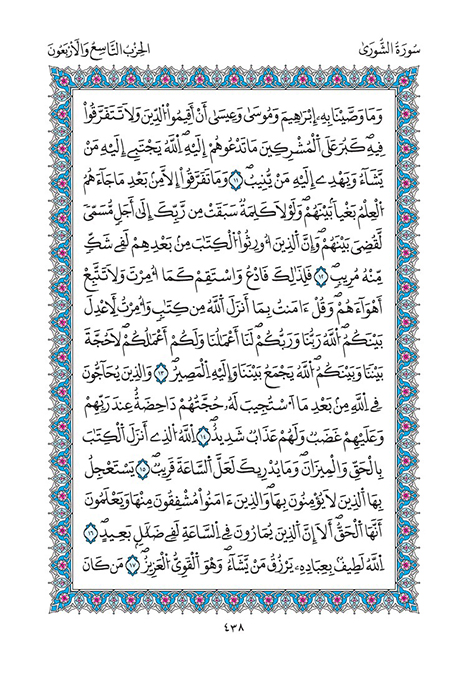 سُورَةُ الشُّورَىٰ
الحِزْبُ التَّاسِعُ وَالأَرْبَعُونَ
وَمَا وَصَّيْنَا بِهِۦٓ إِبْرَٰهِيمَ وَمُوسَىٰ وَعِيسَىٰٓ أَنْ أَقِيمُوا۟ اُلدِّينَ وَلَا تَتَفَرَّقُوا۟
فِيهِۖ كَبُرَ عَلَى اَلْمُشْرِكِينَ مَا تَدْعُوهُمْ إِلَيْهِۖ اِ۬للَّهُ يَجْتَبِےٓ إِلَيْهِ مَنْ
يَّشَآءُ وَيَهْدِےٓ إِلَيْهِ مَنْ يُّنِيبُۖ ١١ وَمَا تَفَرَّقُوٓا۟ إِلَّا مِنۢ بَعْدِ مَا جَآءَهُمُ
اُلْعِلْمُ بَغْياَۢ بَيْنَهُمْۖ وَلَوْلَا كَلِمَةٌ سَبَقَتْ مِن رَّبِّكَ إِلَىٰٓ أَجَلٍ مُّسَمّىٗ
لَّقُضِيَ بَيْنَهُمْۖ وَإِنَّ اَلذِينَ أُورِثُوا۟ اُلْكِتَٰبَ مِنۢ بَعْدِهِمْ لَفِے شَكٍّ
مِّنْهُ مُرِيبٖۖ ١٢ فَلِذَٰلِكَ فَادْعُۖ وَاسْتَقِمْ كَمَآ أُمِرْتَۖ وَلَا تَتَّبِعَ
اَهْوَآءَهُمْۖ وَقُلْ ءَامَنتُ بِمَآ أَنزَلَ اَللَّهُ مِن كِتَٰبٖۖ وَأُمِرْتُ لِأَعْدِلَ
بَيْنَكُمْۖ اُ۬للَّهُ رَبُّنَا وَرَبُّكُمْۖ لَنَآ أَعْمَٰلُنَا وَلَكُمْ أَعْمَٰلُكُمْۖ لَا حُجَّةَ
بَيْنَنَا وَبَيْنَكُمُۖ اُ۬للَّهُ يَجْمَعُ بَيْنَنَاۖ وَإِلَيْهِ اِلْمَصِيرُۖ ١٣ وَالذِينَ يُحَآجُّونَ
فِے اِللَّهِ مِنۢ بَعْدِ مَا اَ۟سْتُجِيبَ لَهُۥ حُجَّتُهُمْ دَاحِضَةٌ عِندَ رَبِّهِمْ
وَعَلَيْهِمْ غَضَبٞ وَلَهُمْ عَذَابٞ شَدِيدٌۖ ١٤ اِ۬للَّهُ اُلذِےٓ أَنزَلَ اَلْكِتَٰبَ
بِالْحَقِّ وَالْمِيزَانَۖ وَمَا يُدْرِيكَ لَعَلَّ اَلسَّاعَةَ قَرِيبٞۖ ١٥ يَسْتَعْجِلُ
بِهَا اَلذِينَ لَا يُؤْمِنُونَ بِهَاۖ وَالذِينَ ءَامَنُوا۟ مُشْفِقُونَ مِنْهَا وَيَعْلَمُونَ
أَنَّهَا اَلْحَقُّۖ أَلَآ إِنَّ اَلذِينَ يُمَارُونَ فِے اِلسَّاعَةِ لَفِے ضَلَٰلِۢ بَعِيدٍۖ ١٦
اِ۬للَّهُ لَطِيفُۢ بِعِبَادِهِۦ يَرْزُقُ مَنْ يَّشَآءُۖ وَهُوَ اَلْقَوِيُّ اُلْعَزِيزُۖ ١٧ مَن كَانَ
٤٣٨